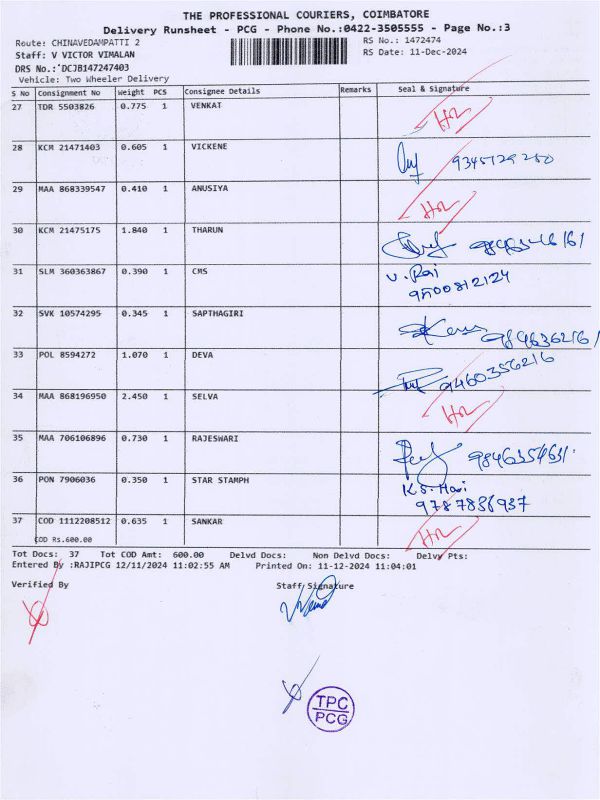 THE PROFESSIONAL COURIERS, COIMBATORE
Delivery Runsheet - PCG - Phone No.:0422-3505555 - Page No.:3
Route: CHINAVEDAMPATTI 2 RS No.: 1472474
Staff: V VICTOR VIMALAN RS Date: 11-Dec-2024
DRS No.:'DCJB147247403
Vehicle: Two Wheeler Delivery
S No Consignment No Weight PCS Consignee Details Remarks Seal & Signature
27 TDR 5503826 0.775 1 VENKAT
28 KCM 21471403 0.605 1 VICKENE
29 MAA 868339547 0.410 1 ANUSIYA
30 KCM 21475175 1.840 1 THARUN
31 SLM 360363867 0.390 1 CMS
9500812124
32 SVK 10574295 0.345 1 SAPTHAGIRI
33 POL 8594272 1.070 1 DEVA
9460356216
34 MAA 868196950 2.450 1 SELVA
35 MAA 706106896 0.730 1 RAJESWARI
36 PON 7906036 0.350 1 STAR STAMPH K.S. Hari
9787836937
37 COD 1112208512 0.635 1 SANKAR
COD Rs.600.00
Tot Docs: 37 Tot COD Amt: 600.00 Delvd Docs: Non Delvd Docs: Delvy Pts:
Entered By :RAJIPCG 12/11/2024 11:02:55 AM Printed On: 11-12-2024 11:04:01
Verified By Staff Signature
TPC
PCG